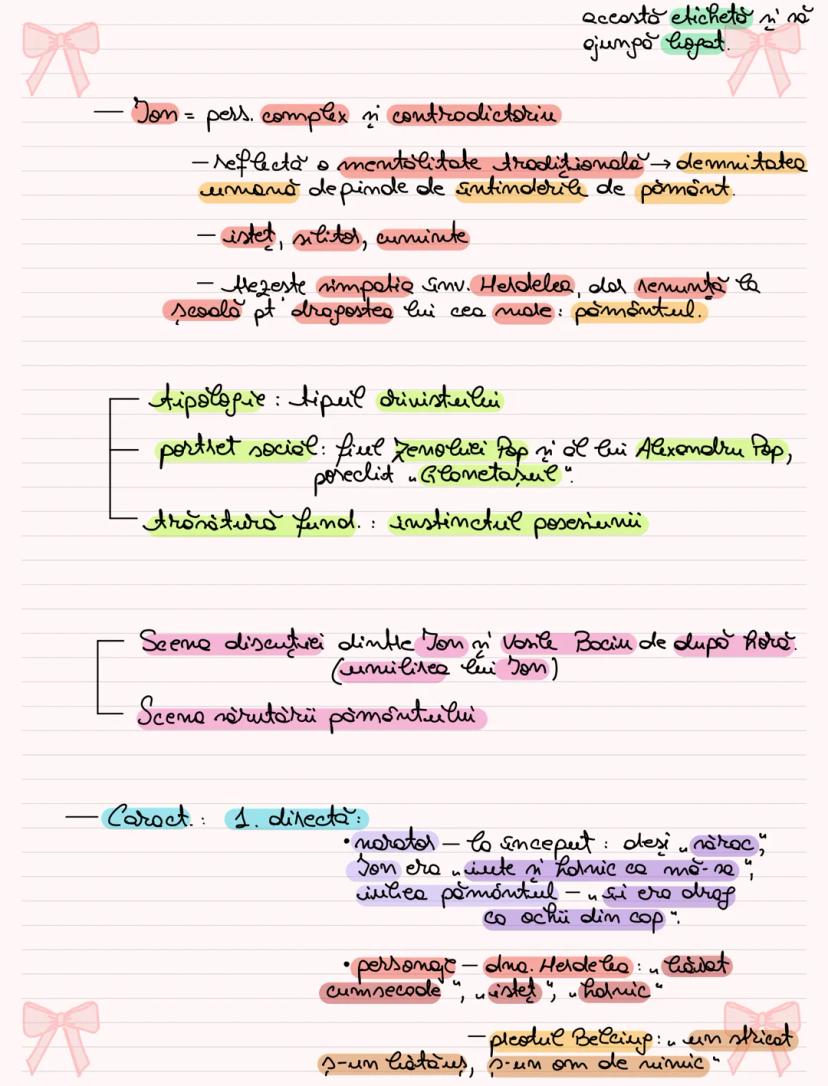 această etichetă și să
ajungă bogat.
— Ion = pers. complex și contradictoriu
— reflectă o mentalitate tradițională → demnitatea
umană depinde de întinderile de pământ.
— isteț, silitor, cuminte
— trezește simpatia înv. Herdelea, dar renunță la
școală pt dragostea lui cea mare: pământul.
tipologie: tipul arivistului
portret social: fiul Zenobiei Pop și al lui Alexandru Pop,
poreclit „Glanetașul".
trăsătură fund. : instinctul posesiunii
Scena discuției dintre Ion și Vasile Baciu de după horă.
(umilirea lui Ion)
Scena sărutării pământului
— Caract. : 1. directă:
• narator — la început : deși „sărac",
Ion era „iute și harnic ca mă-sa",
iubea pământul — „îi era drag
ca ochii din cap".
• personaje — dna. Herdelea : „băiat
cumsecade", „isteț", „harnic"
— preotul Belciug : „un stricat
ș-un bătăuș, ș-un om de nimic"